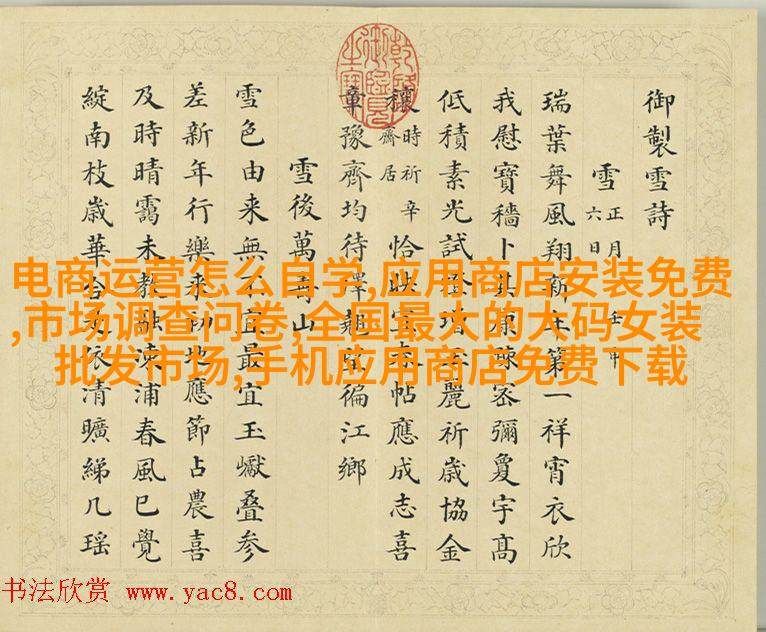 御製雪詩
雪 正月六日
瑞葉舞風翔新年第一祥宵衣欣
我慰寶穡卜其密彌敻宇高
低積素光試增麗祈歲協金
穰 時祈辛齋居 恰春帖應成志喜
章豫齊均待澤徧江鄉
雪後萬壽山
雪色由来無不宜最宜玉巘叠参
差新年行樂来初地應節占農喜
及時晴靄未教融凍浦春風已覺
綻南枝歲華依清曠綈几瑶
电商运营怎么自学,应用商店安装免费
,市场调查问卷,全国最大的大码女装
批发市场,手机应用商店免费下载
书法欣赏 www.yac8.com